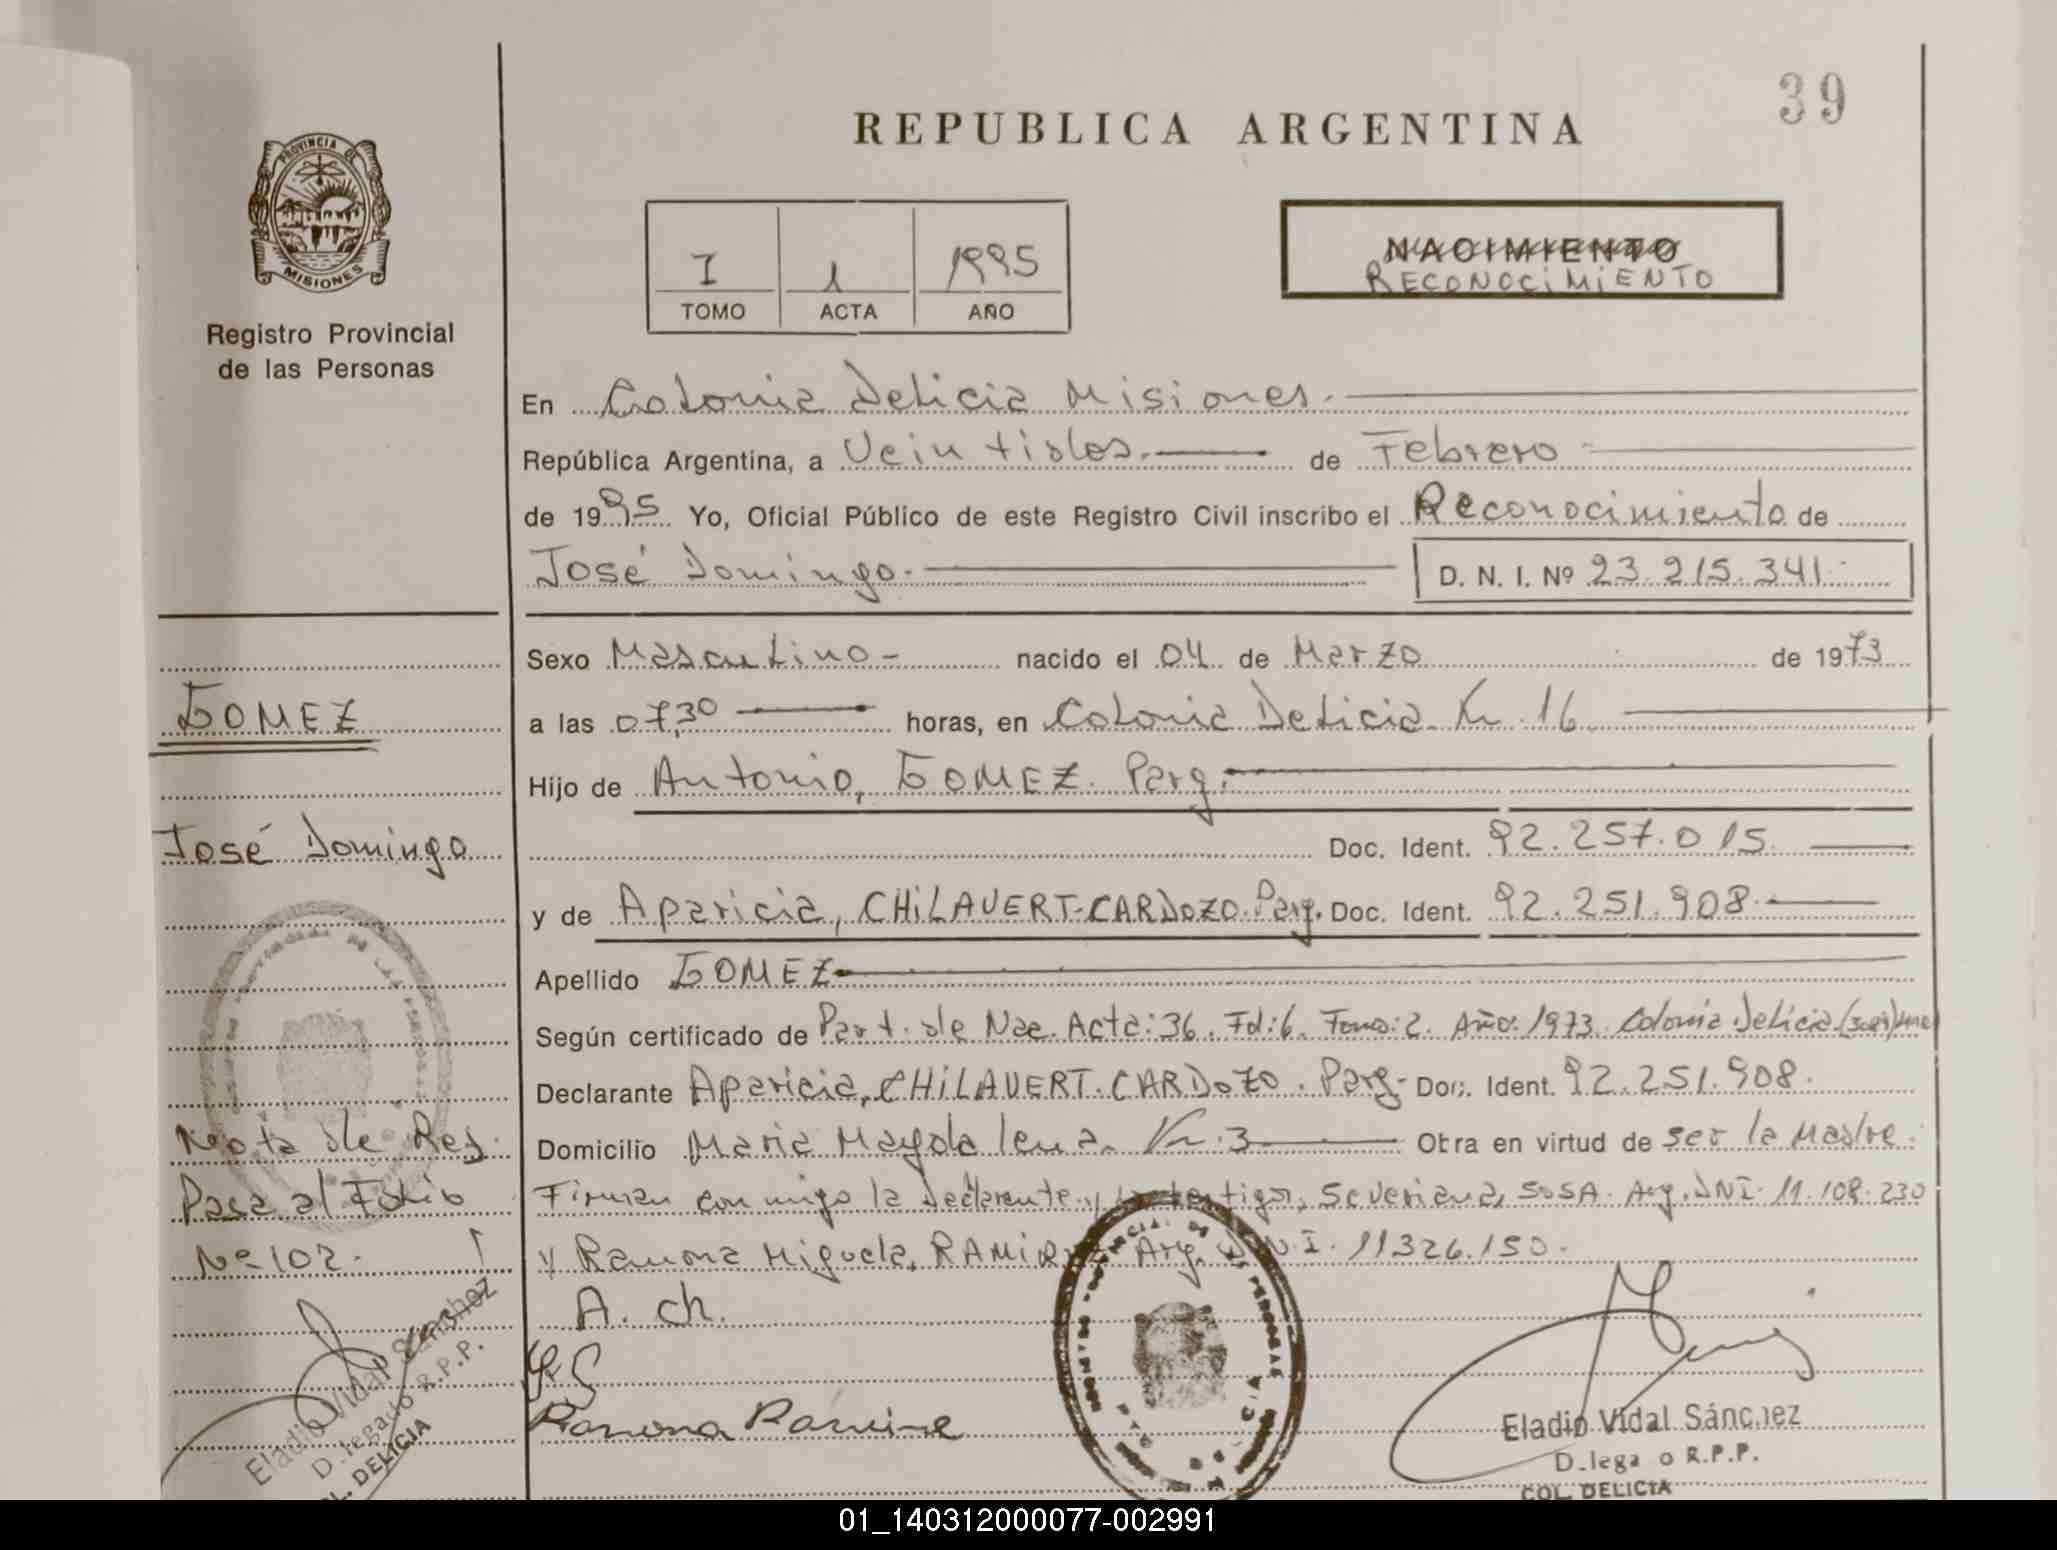 39
REPUBLICA ARGENTINA
PROVINCIA DE
MISIONES
Registro Provincial
de las Personas
I 1 1995
TOMO ACTA AÑO
NACIMIENTO
RECONOCIMIENTO
En Colonia Delicia Misiones.
República Argentina, a Veintidos. de Febrero
de 1995 Yo, Oficial Público de este Registro Civil inscribo el Reconocimiento de
José Domingo. D. N. I. Nº 23.215.341.
Sexo Masculino - nacido el 04 de Marzo de 1973
GOMEZ
a las 07,30 horas, en Colonia Delicia Km 16
Hijo de Antonio, GOMEZ. Parg.
José Domingo
Doc. Ident. 92.257.015
y de Aparicia, CHILAVERT-CARDOZO. Parg. Doc. Ident. 92.251.908.
Apellido GOMEZ
Según certificado de Part. de Nac. Acta: 36. Fol: 6. Tomo: 2. Año: 1973. Colonia Delicia
Declarante Aparicia, CHILAVERT.CARDOZO. Parg- Doc. Ident. 92.251.908.
Nota de Ref.
Domicilio Maria Magdalena. Km: 3 Obra en virtud de ser la Madre.
Pasa al Folio
Firman conmigo la declarante y testigos, Severiana, SOSA. Arg. DNI. 11.108.230
Nº 102.
y Ramona Miguela, RAMIREZ Arg. D.N.I. 11326.150.
A. ch.
S
Ramona Ramire
Eladio Vidal Sánchez
D.lega o R.P.P.
COL. DELICIA
Eladio Vidal Sánchez
D.legado R.P.P.
COL. DELICIA
01_140312000077-002991